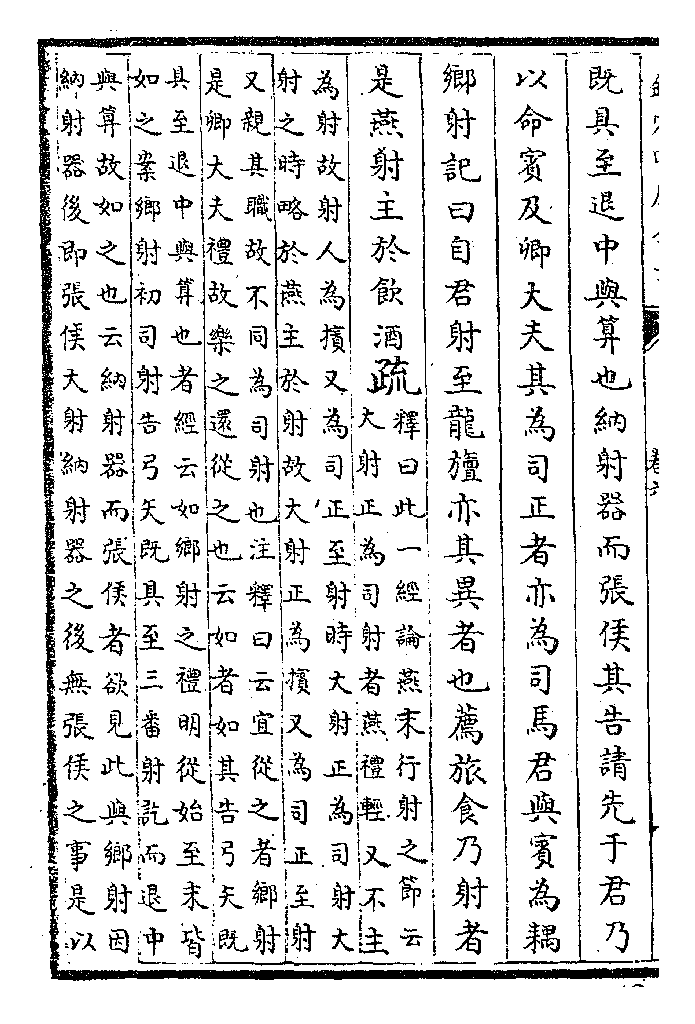 既具至退中與算也納射器而張侯其告請先于君乃
以命賓及卿大夫其為司正者亦為司馬君與賓為耦
鄉射記曰自君射至龍旜亦其異者也薦旅食乃射者
是燕射主於飲酒疏
釋曰此一經論燕末行射之節云
大射正為司射者燕禮輕又不主
為射故射人為擯又為司正至射時大射正為司射大
射之時略於燕主於射故大射正為擯又為司正至射
又親其職故不同為司射也注釋曰云宜從之者鄉射
是卿大夫禮故樂之還從之也云如者如其告弓矢既
具至退中與算也者經云如鄉射之禮明從始至末皆
如之案鄉射初司射告弓矢既具至三番射訖而退中
與算故如之也云納射器而張侯者欲見此與鄉射因
納射器後即張侯大射納射器之後無張侯之事是以